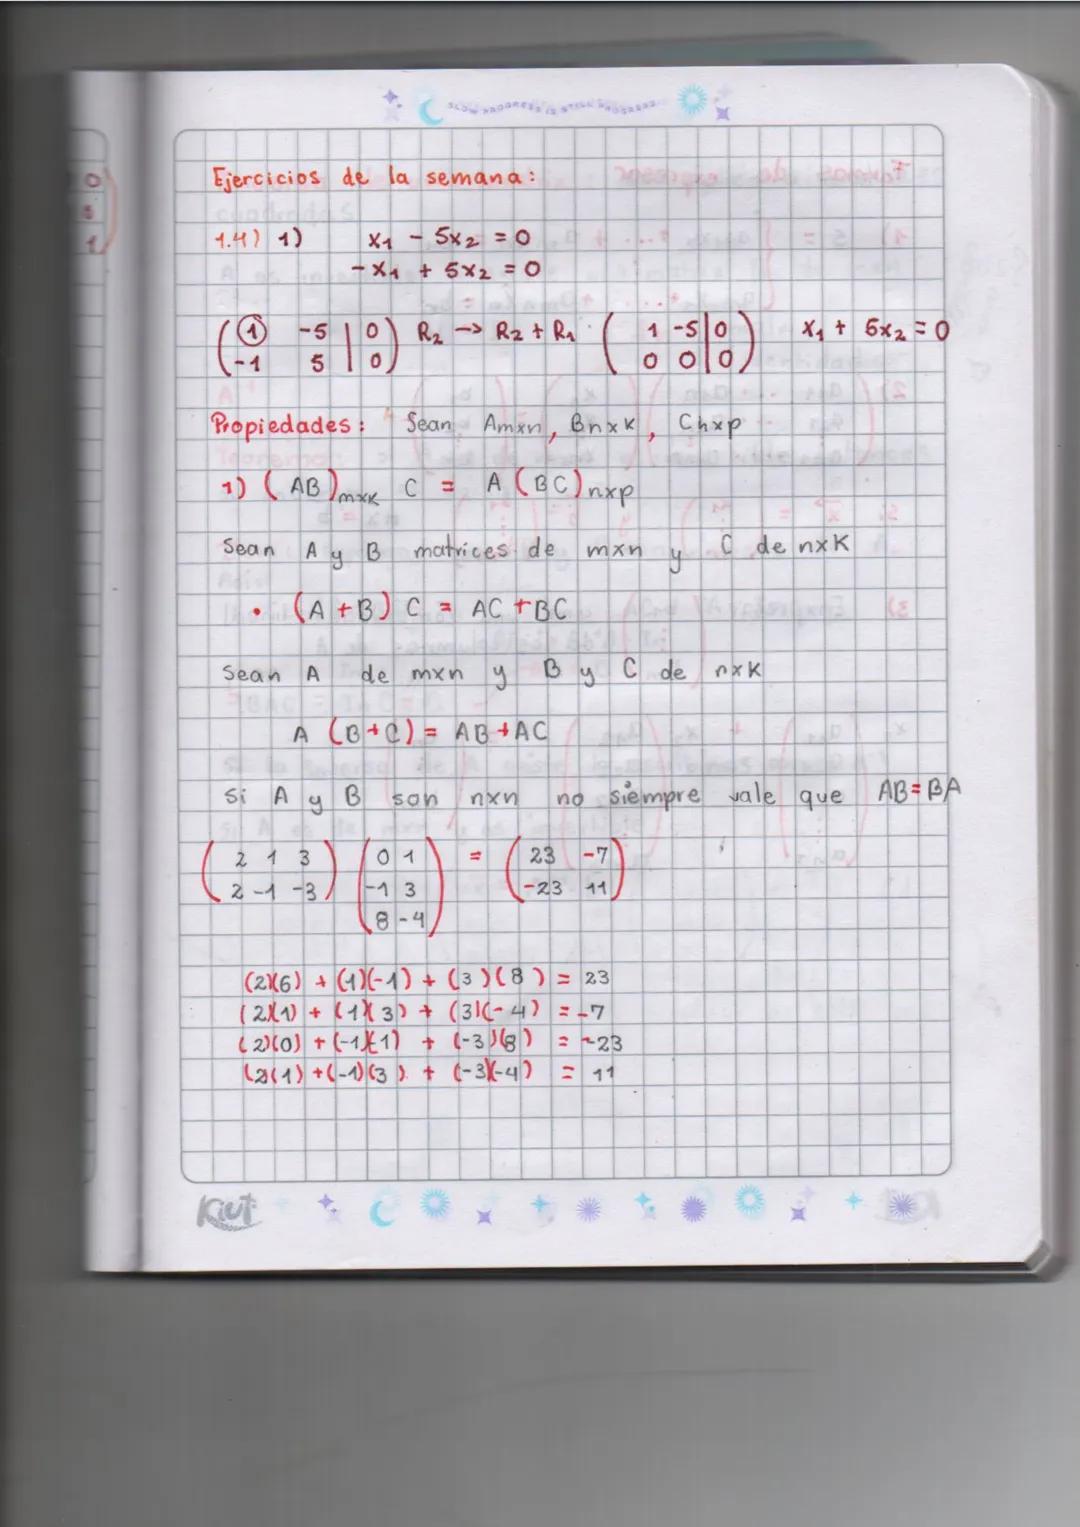 SLOW PROGRESS IS STILL PROGRESS
Ejercicios de la semana:
1.4) 1) x1 - 5x2 = 0
-x1 + 5x2 = 0
( 1 -5 | 0 ) R2 -> R2 + R1 ( 1 -5 | 0 ) x1 + 5x2 = 0
( -1 5 | 0 ) ( 0 0 | 0 )
Propiedades: Sean Amxn, Bnxk, Chxp
1) (AB)mxk C = A (BC)nxp
Sean A y B matrices de mxn y C de nxk
• (A + B) C = AC + BC
Sean A de mxn y B y C de nxk
A (B+C) = AB + AC
Si A y B son nxn no siempre vale que AB = BA
( 2 1 3 ) ( 0 1 ) = ( 23 -7 )
( 2 -1 -3 ) ( -1 3 ) ( -23 11 )
( 8 -4 )
(2)(6) + (1)(-1) + (3)(8) = 23
(2)(1) + (1)(3) + (3)(-4) = -7
(2)(0) + (-1)(1) + (-3)(8) = -23
(2)(1) + (-1)(3) + (-3)(-4) = 11
Kiut